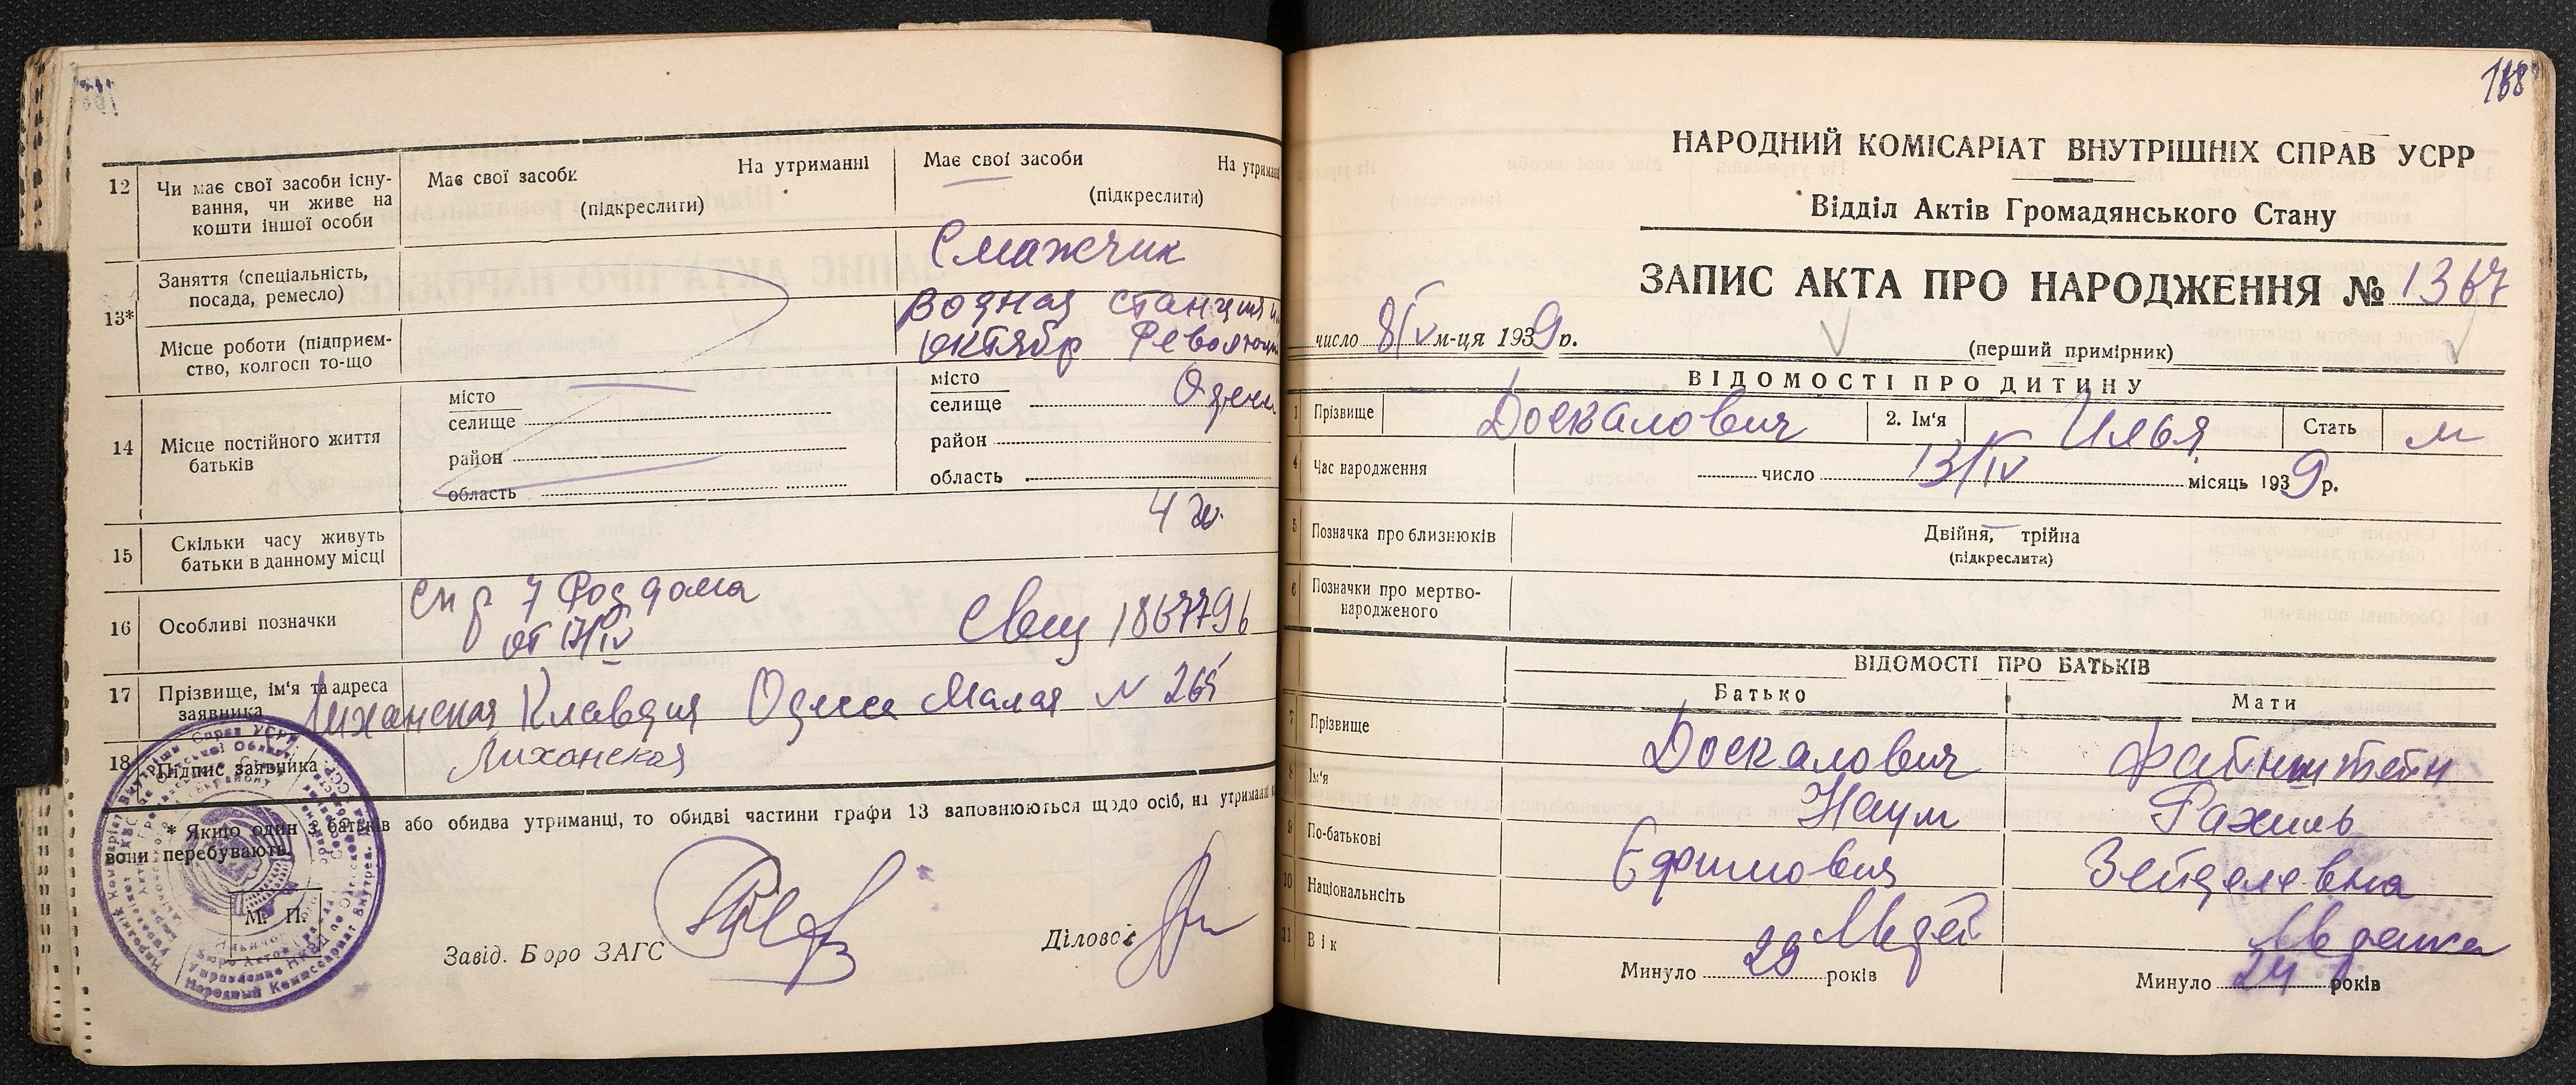 12 Чи має свої засоби існу-
вання, чи живе на
кошти іншої особи
Має свої засоби На утриманні
(підкреслити)
Має свої засоби На утриманні
(підкреслити)
13*
Заняття (спеціальність,
посада, ремесло)
Смажчик
Місце роботи (підприєм-
ство, колгосп то-що
Водная станция
октябр Революции
14 Місце постійного життя
батьків
місто
селище
район
область
місто Одесса
селище
район
область
15 Скільки часу живуть
батьки в данному місці
4 г.
16 Особливі позначки
спр 7 Роддома
от 17/IV
Свид 1867796
17 Прізвище, ім'я та адреса
заявника
Лиханская Клавдия Одесса Малая N 26
18 Підпис заявника
Лиханская
* Якщо один з батьків або обидва утриманці, то обидві частини графи 13 заповнюються щодо осіб, на утриманні
вони перебувають.
М. П.
Завід. Бюро ЗАГС
Діловод
168
НАРОДНИЙ КОМІСАРІАТ ВНУТРІШНІХ СПРАВ УСРР
Відділ Актів Громадянського Стану
ЗАПИС АКТА ПРО НАРОДЖЕННЯ № 1367
число 8/IV м-ця 1939 р.
(перший примірник)
ВІДОМОСТІ ПРО ДИТИНУ
1 Прізвище Доскалович 2. Ім'я Илья Стать м
4 Час народження число 13/IV місяць 1939 р.
5 Позначка про близнюків Двійня, трійна
(підкреслити)
6 Позначки про мертво-
народженого
ВІДОМОСТІ ПРО БАТЬКІВ
Батько Мати
7 Прізвище Доскалович Файнштейн
8 Ім'я Наум Рахиль
9 По-батькові Ефимович Зейделевна
10 Національність
11 Вік Минуло 29 років Минуло 24 років